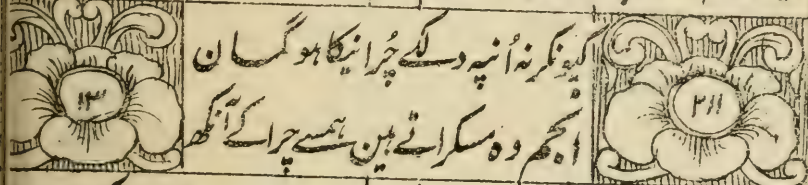 ۲۱۱
کیونکر نہ اُنپہ دلکے چُرانیکا ہو گمان
انجم وہ مسکراتے ہین ہمسے چرا کے آنکھ
۱۳